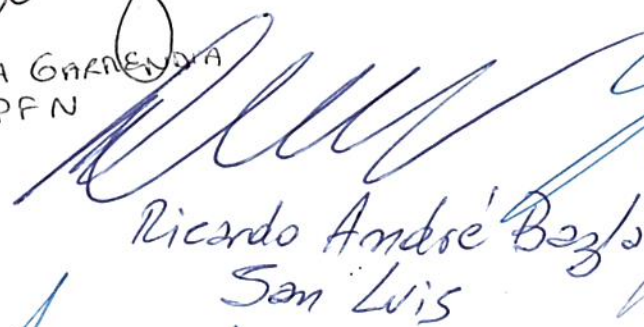 A GARMENDIA
PFN
Ricardo André Bazla
San Luis